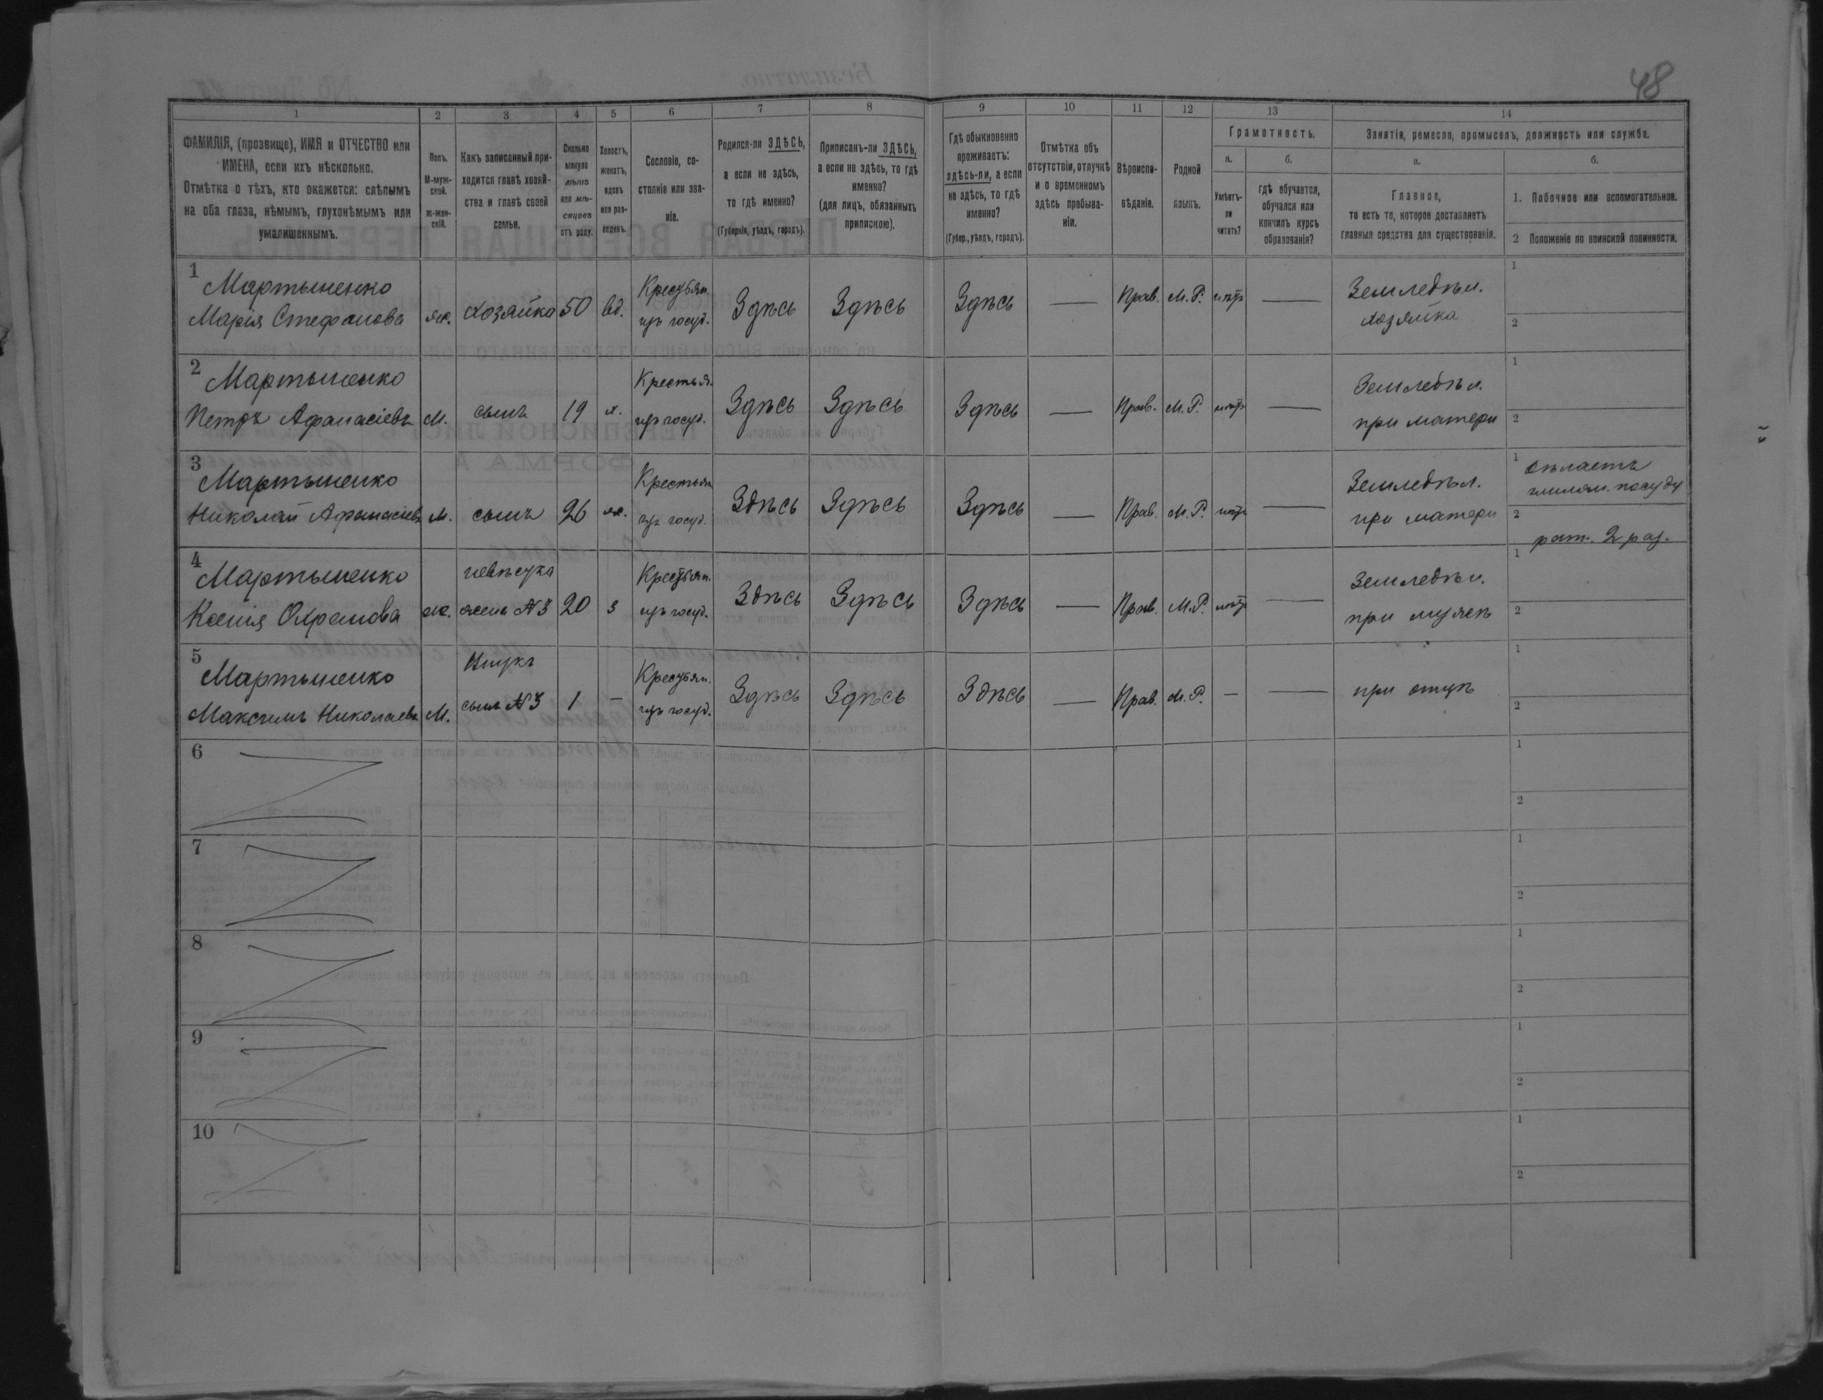 48
1 2 3 4 5 6 7 8 9 10 11 12 13 14
ФАМИЛІЯ, (прозвище), ИМЯ и ОТЧЕСТВО или
ИМЕНА, если ихъ нѣсколько.
Отмѣтка о тѣхъ, кто окажется: слѣпымъ
на оба глаза, нѣмымъ, глухонѣмымъ или
умалишеннымъ.
Полъ.
М-муж-
ской.
ж-жен-
скій.
Какъ записанный при-
ходится главѣ хозяй-
ства и главѣ своей
семьи.
Сколько
минуло
лѣтъ
или мѣ-
сяцевъ
отъ роду.
Холостъ,
женатъ,
вдовъ
или раз-
веденъ.
Сословіе, со-
стояніе или зва-
ніе.
Родился-ли ЗДѢСЬ,
а если не здѣсь,
то гдѣ именно?
(Губернія, уѣздъ, городъ).
Приписанъ-ли ЗДѢСЬ,
а если не здѣсь, то гдѣ
именно?
(для лицъ, обязанныхъ
припискою).
Гдѣ обыкновенно
проживаетъ:
здѣсь-ли, а если
не здѣсь, то гдѣ
именно?
(Губер., уѣздъ, городъ).
Отмѣтка объ
отсутствіи, отлучкѣ
и о временномъ
здѣсь пребыва-
ніи.
Вѣроиспо-
вѣданіе.
Родной
языкъ.
Грамотность.
а.
Умѣетъ-
ли
читать?
б.
гдѣ обучается,
обучался или
кончилъ курсъ
образованія?
Занятіе, ремесло, промыселъ, должность или служба.
а.
Главное,
то есть то, которое доставляетъ
главныя средства для существованія.
б.
1. Побочное или вспомогательное.
2 Положеніе по воинской повинности.
1 Мартыненко
Марія Стефанова ж. хозяйка 50 вд. Крестьян. изъ госуд. Здѣсь Здѣсь Здѣсь — Прав. М. Р. нѣтъ — Земледѣл. хозяйка 1 2
2 Мартыненко
Петръ Афанасіевъ М. сынъ 19 х. Крестьян. изъ госуд. Здѣсь Здѣсь Здѣсь — Прав. М. Р. нѣтъ — Земледѣл. при матери 1 2
3 Мартыненко
Николай Афанасіевъ М. сынъ 26 ж. Крестьян. изъ госуд. Здѣсь Здѣсь Здѣсь — Прав. М. Р. нѣтъ — Земледѣл. при матери 1 глинян. посуду 2 рат. 2 раз.
4 Мартыненко
Ксенія Охремова ж. невѣстка жена №3 20 з Крестьян. изъ госуд. Здѣсь Здѣсь Здѣсь — Прав. М. Р. нѣтъ — Земледѣл. при мужѣ 1 2
5 Мартыненко
Максимъ Николаевъ М. Внукъ сынъ №3 1 — Крестьян. изъ госуд. Здѣсь Здѣсь Здѣсь — Прав. М. Р. — — при отцѣ 1 2
6 1 2
7 1 2
8 1 2
9 1 2
10 1 2